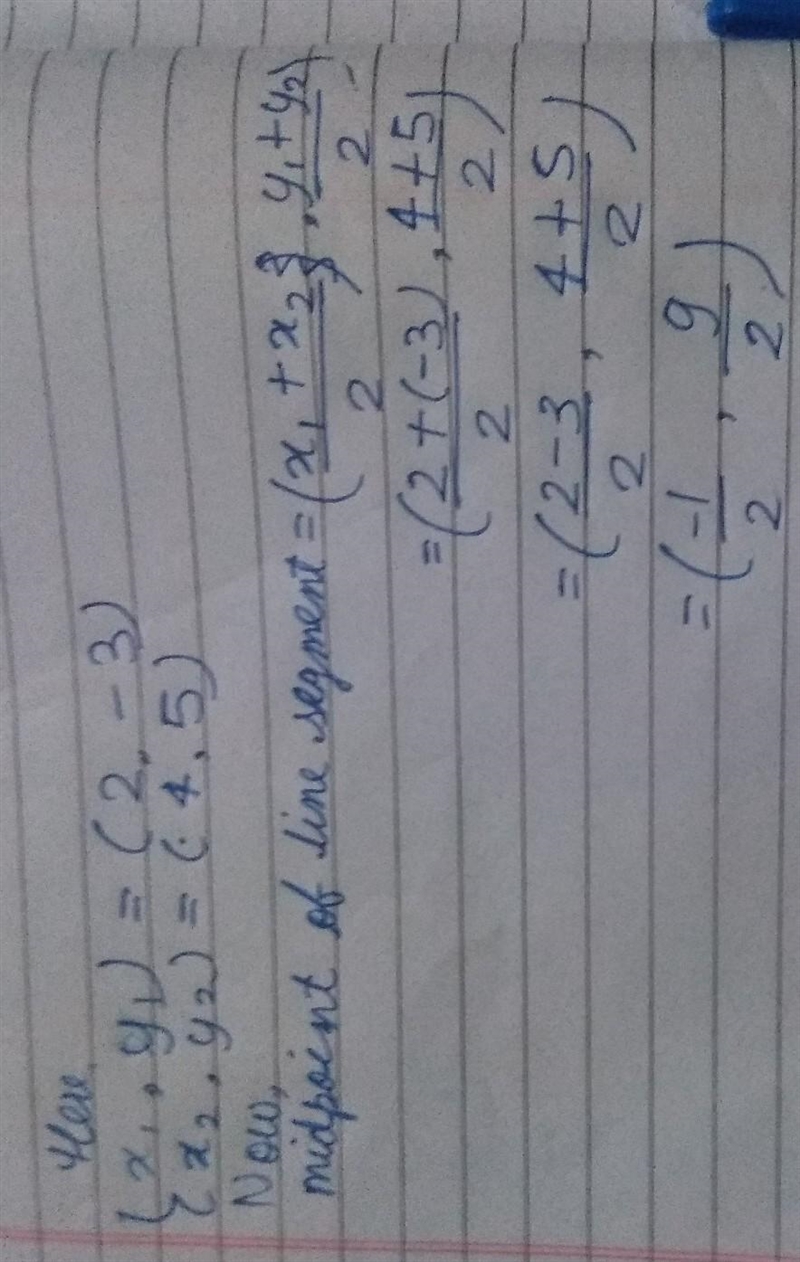 Here
{ x₁, y₁) = (2, -3)
{ x₂, y₂) = (4, 5)
Now,
midpoint of line segment = (x₁ + x₂/2, y₁+y₂/2)
= (2+(-3)/2, 4+5/2)
= (2-3/2, 4+5/2)
= (-1/2, 9/2)